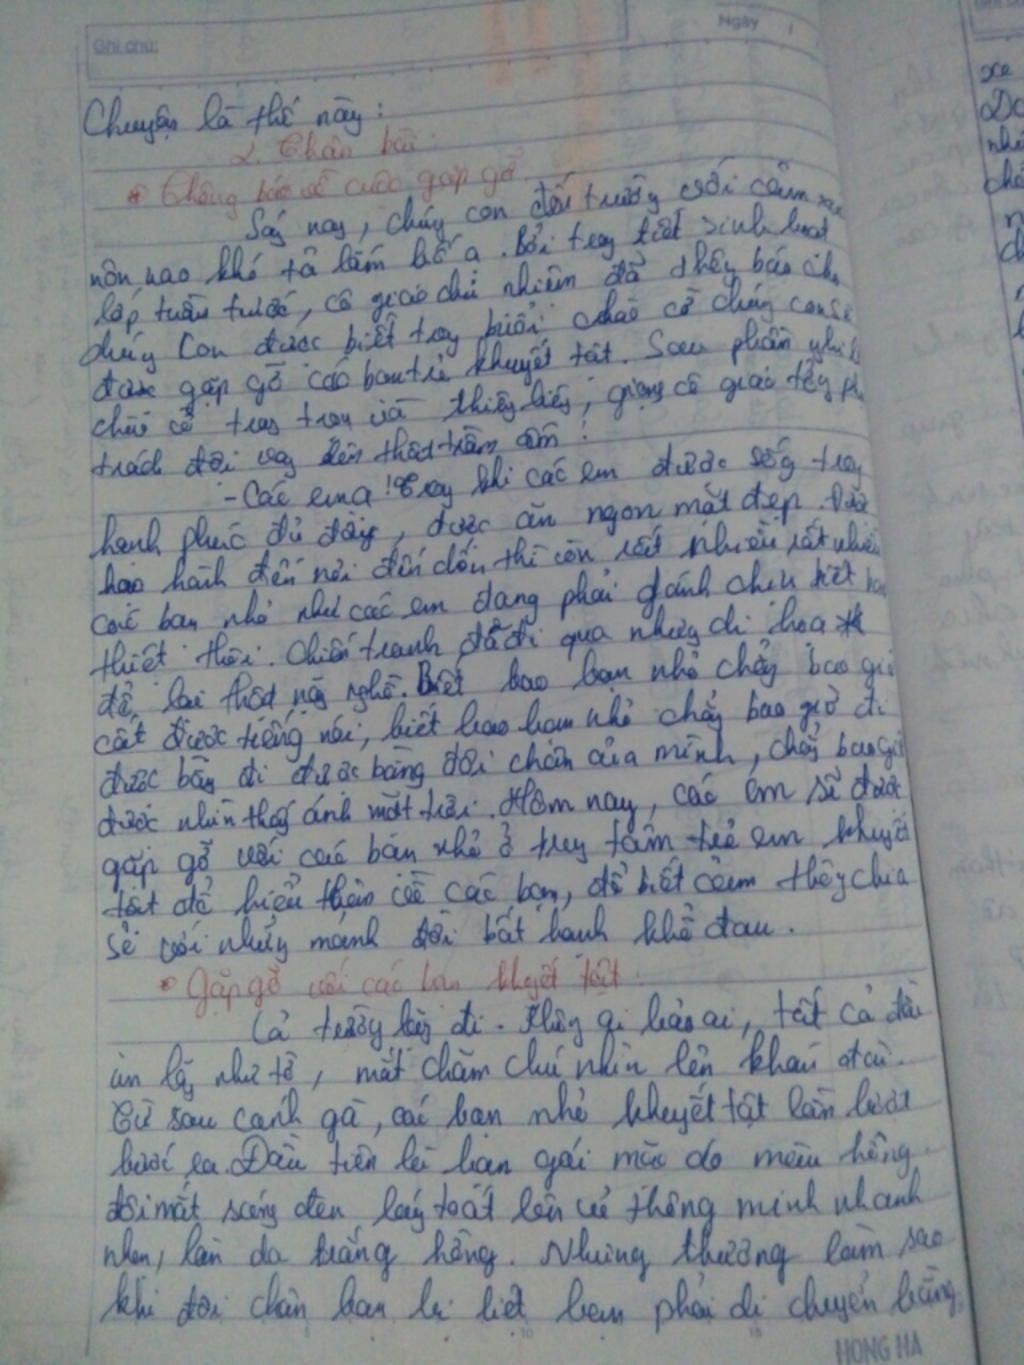 Ghi chú:
Ngày /
Chuyện là thế này:
2. Thân bài
* Thông báo về cuộc gặp gỡ.
Sáng nay, chúng con đến trường với cảm xúc
nôn nao khó tả lắm bố ạ. Bởi trong tiết sinh hoạt
lớp tuần trước, cô giáo chủ nhiệm đã thông báo cho
chúng con được biết trong buổi chào cờ chúng con sẽ
được gặp gỡ các bạn trẻ khuyết tật. Sau phần nghi lễ
chào cờ trang trọng và thiêng liêng, giọng cô giáo tổng phụ
trách đội vang lên thật trầm ấm:
- Các em ạ! Trong khi các em được sống trong
hạnh phúc đủ đầy, được ăn ngon mặc đẹp. Được
học hành đến nơi đến chốn thì còn rất nhiều rất nhiều
các bạn nhỏ như các em đang phải gánh chịu biết bao
thiệt thòi. Chiến tranh đã đi qua nhưng di hoạ
để lại thật nặng nghề. Biết bao bạn nhỏ chẳng bao giờ
cất được tiếng nói, biết bao bạn nhỏ chẳng bao giờ đi
được bằng đi được bằng đôi chân của mình, chẳng bao giờ
được nhìn thấy ánh mặt trời. Hôm nay, các em sẽ được
gặp gỡ với các bạn nhỏ ở trung tâm trẻ em khuyết
tật để hiểu thêm về các bạn, để biết cảm thông chia
sẻ với những mảnh đời bất hạnh khổ đau.
* Gặp gỡ với các bạn khuyết tật.
Cả trường lặng đi. Không ai bảo ai, tất cả đều
im lặng như tờ, mắt chăm chú nhìn lên khán đài.
Từ sau cánh gà, các bạn nhỏ khuyết tật lần lượt
bước ra. Đầu tiên là bạn gái mặc áo màu hồng.
đôi mắt sáng đen láy toát lên vẻ thông minh nhanh
nhẹn, làn da trắng hồng. Nhưng thương làm sao
khi đôi chân bạn bị liệt bạn phải di chuyển bằng
HONG HA